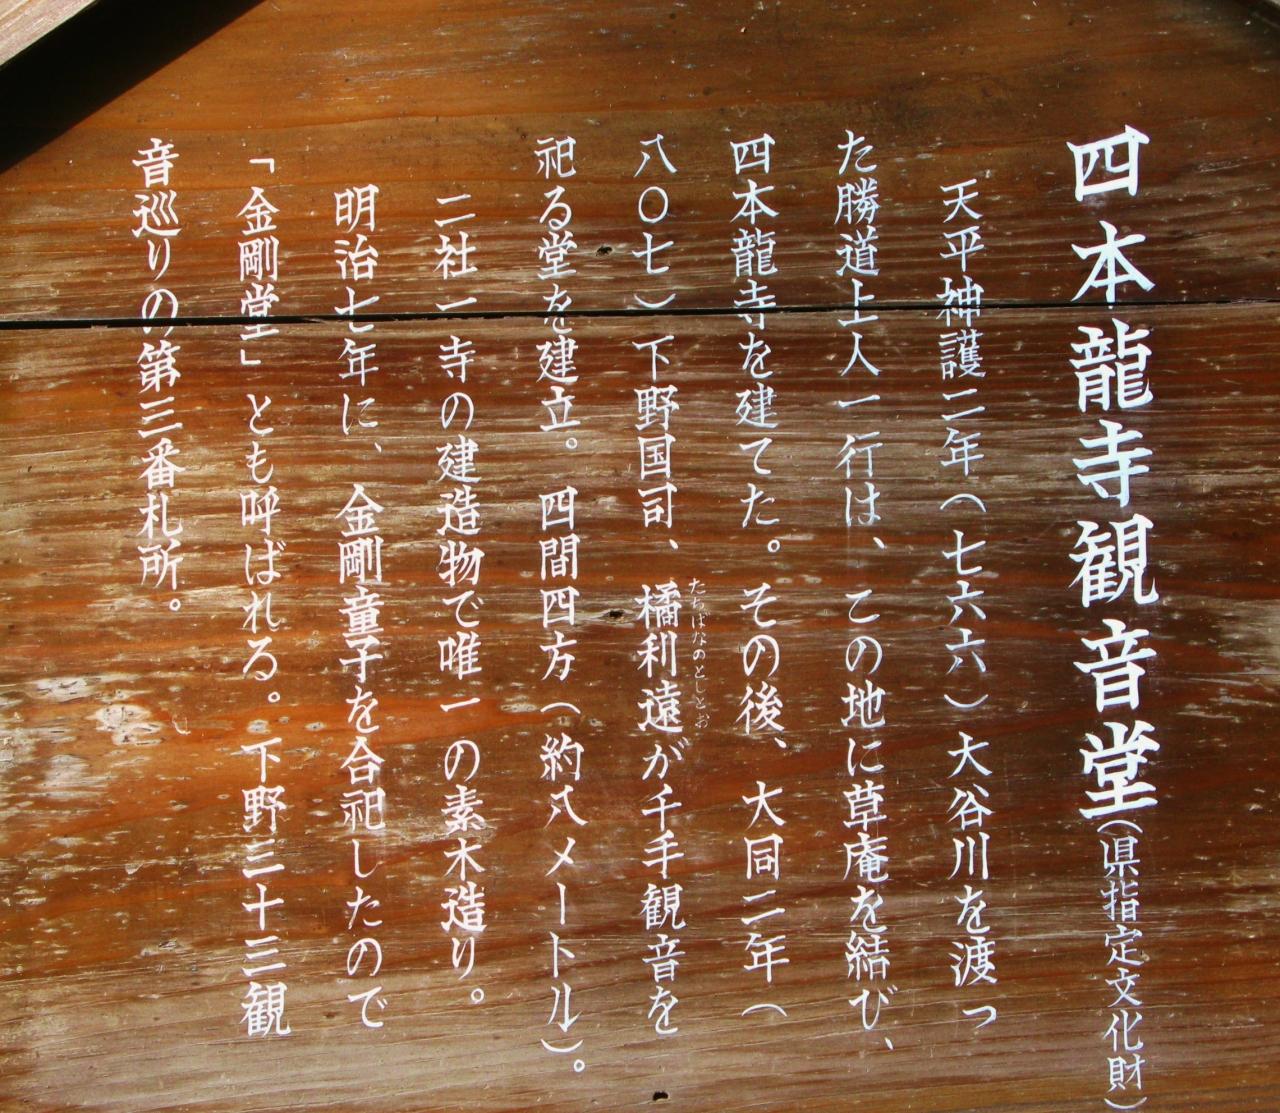 四本龍寺観音堂(県指定文化財)
天平神護二年(七六六)大谷川を渡っ
た勝道上人一行は、この地に草庵を結び、
四本龍寺を建てた。その後、大同二年(
八〇七)下野国司、橘利遠が千手観音を
たちばなのとしとお
祀る堂を建立。四間四方(約八メートル)。
二社一寺の建造物で唯一の素木造り。
明治七年に、金剛童子を合祀したので
「金剛堂」とも呼ばれる。下野三十三観
音巡りの第三番札所。